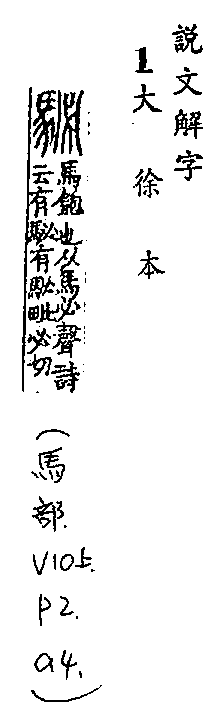 說文解字
1大徐本
駜 馬飽也从馬必聲詩
云有駜有駜毗必切
(馬部.
V10上.
P2.
a4.)